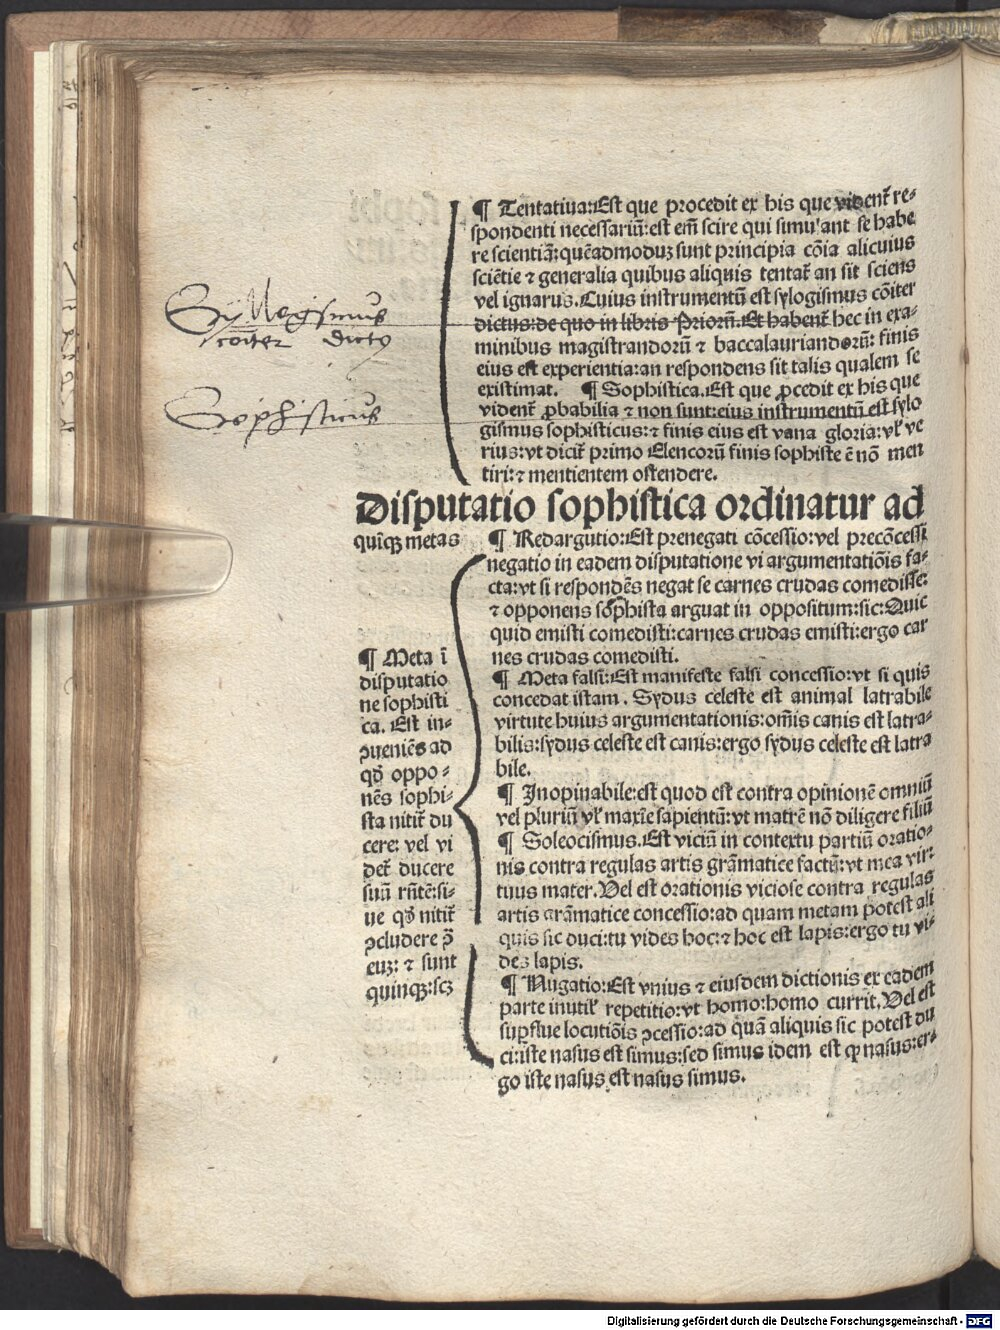 ¶ Tentatiua: Est que procedit ex his que vident̃ re⸗
spondenti necessariũ: est em̃ scire qui simulant se habe
re scientiã: quẽadmoduȝ sunt principia cõia alicuius
sciẽtie ⁊ generalia quibus aliquis tentat̃ an sit sciens
vel ignarus. Cuius instrumentũ est sylogismus cõiter
dictus: de quo in libris Priorũ. Et habent̃ hec in exa⸗
minibus magistrandorũ ⁊ baccalauriandorũ: finis
eius est experientia: an respondens sit talis qualem se
existimat. ¶ Sophistica. Est que ꝓcedit ex his que
vident̃ ꝓbabilia ⁊ non sunt: eius instrumentũ est sylo
gismus sophisticus: ⁊ finis eius est vana gloria: vl̃ ve
rius: vt dicit̃ primo Elencorũ finis sophiste ẽ nõ men
tiri: ⁊ mentientem ostendere.
Syllogismus
cõiter dictus
Sophisticus
Disputatio sophistica ordinatur ad
quĩqꝫ metas
¶ Meta ĩ
disputatio
ne sophisti
ca. Est in⸗
ꝯueniẽs ad
qd̃ oppo⸗
nẽs sophi⸗
sta nitit̃ du
cere: vel vi
det̃ ducere
suũ rñtẽ: si⸗
ue qd̃ nitit̃
ꝯcludere ꝯ̃
euȝ: ⁊ sunt
quinqꝫ: scȝ
¶ Redargutio: Est prenegati cõcessio: vel precõcessi
negatio in eadem disputatione vi argumentatiõis fa⸗
cta: vt si respondẽs negat se carnes crudas comedisse:
⁊ opponens sophista arguat in oppositum: sic: Quic
quid emisti comedisti: carnes crudas emisti: ergo car
nes crudas comedisti.
¶ Meta falsi: Est manifeste falsi concessio: vt si quis
concedat istam. Sydus celeste est animal latrabile
virtute huius argumentationis: om̃is canis est latra⸗
bilis: sydus celeste est canis: ergo sydus celeste est latra
bile.
¶ Inopinabile: est quod est contra opinionẽ omniũ
vel pluriũ vl̃ maxĩe sapientũ: vt matrẽ nõ diligere filiũ
¶ Soleocismus. Est viciũ in contextu partiũ oratio⸗
nis contra regulas artis grãmatice factũ: vt mea vir⸗
tuus mater. Vel est orationis viciose contra regulas
artis grãmatice concessio: ad quam metam potest ali
quis sic duci: tu vides hoc: ⁊ hoc est lapis: ergo tu vi⸗
des lapis.
¶ Nugatio: Est vnius ⁊ eiusdem dictionis ex eadem
parte inutil̃ repetitio: vt homo: homo currit. Vel est
suꝑflue locutiõis ꝯcessio: ad quã aliquis sic potest du
ci: iste nasus est simus: sed simus idem est ꝙ nasus: er⸗
go iste nasus est nasus simus.
Digitalisierung gefördert durch die Deutsche Forschungsgemeinschaft - DFG